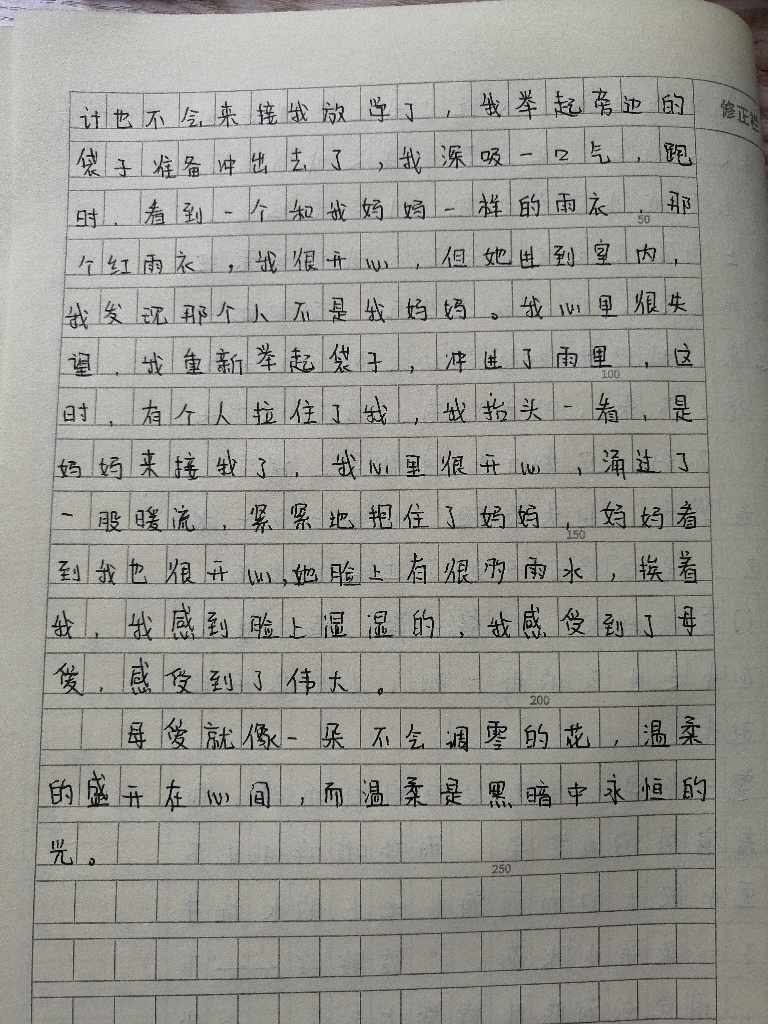 计也不会来接我放学了，我举起旁边的
修正栏
袋子准备冲出去了，我深吸一口气，跑
时，看到一个和我妈妈一样的雨衣，那
50
个红雨衣，我很开心，但她进到室内，
我发现那个人不是我妈妈。我心里很失
望，我重新举起袋子，冲进了雨里，这
100
时，有个人拉住了我，我抬头一看，是
妈妈来接我了，我心里很开心，涌过了
一股暖流，紧紧地抱住了妈妈，妈妈看
150
到我也很开心，她脸上有很多雨水，挨着
我，我感到脸上湿湿的，我感受到了母
爱，感受到了伟大。
200
母爱就像一朵不会凋零的花，温柔
的盛开在心间，而温柔是黑暗中永恒的
光。
250